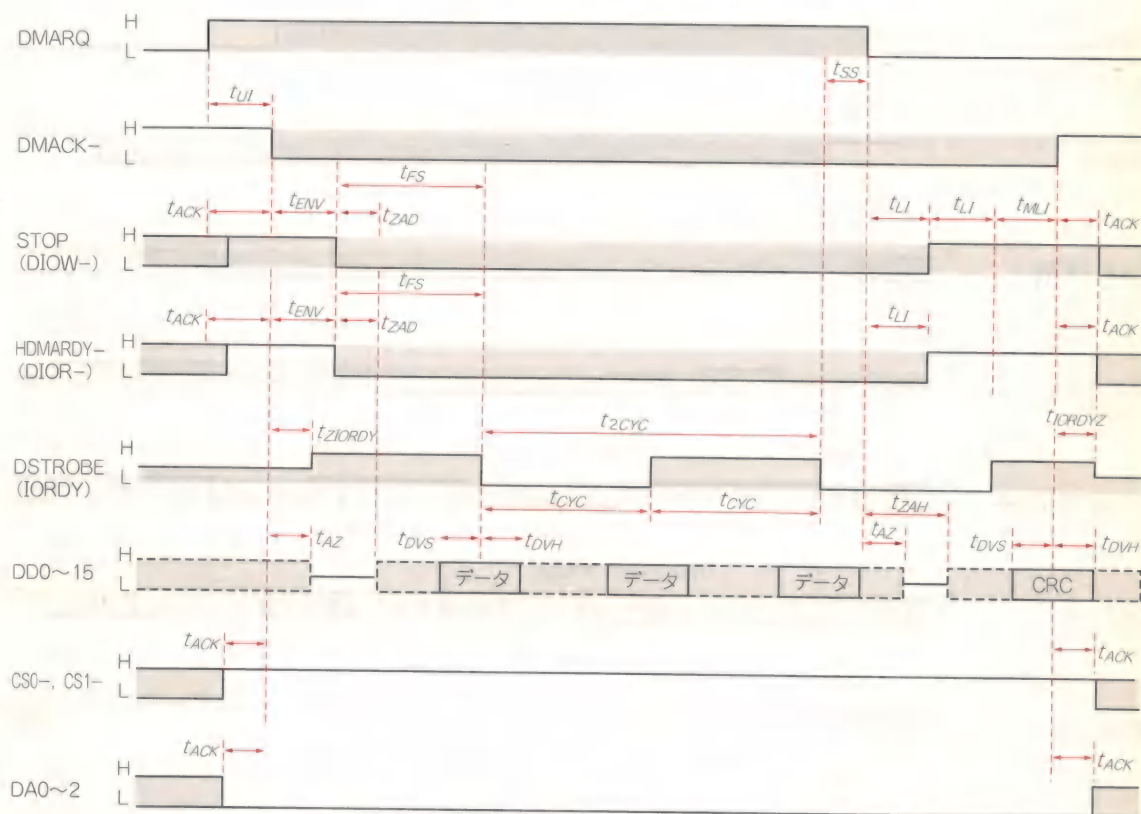 H
DMARQ
L
tSS
tUI
H
DMACK-
L
tFS
tACK tENV tZAD tLI tLI tMLI tACK
STOP
(DIOW-)
H
L
tFS
tACK tENV tZAD tLI tACK
HDMARDY-
(DIOR-)
H
L
t2CYC
tZIORDY tIORDYZ
DSTROBE
(IORDY)
H
L
tCYC tCYC tZAH
tAZ tDVS tDVH tAZ tDVS tDVH
H
DD0~15
L
データ データ データ CRC
tACK tACK
H
CS0-, CS1-
L
tACK tACK
H
DA0~2
L